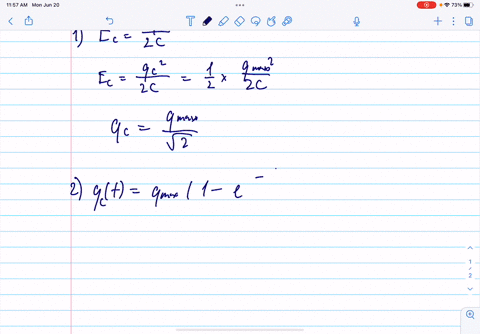 11:57 AM Mon Jun 20
73%
1) E_c = ―/2C
E_c = q_c²/2C = 1/2 × q_max²/2C
q_c = q_max/√2
2) q_c(t) = q_max (1 - e^-
1
2